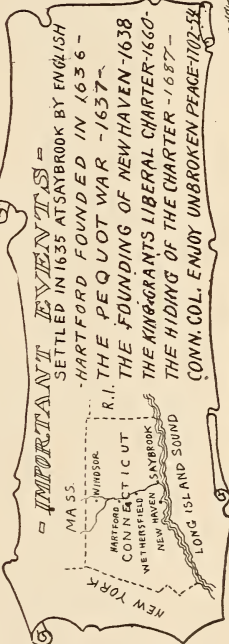 - IMPORTANT EVENTS -
SETTLED IN 1635 AT SAYBROOK BY ENGLISH
- HARTFORD FOUNDED IN 1636 -
THE PEQUOT WAR - 1637 -
THE FOUNDING OF NEW HAVEN - 1638
THE KING GRANTS LIBERAL CHARTER - 1660 -
THE HIDING OF THE CHARTER - 1687 -
CONN. COL. ENJOY UNBROKEN PEACE - 1702-54
MASS.
WINDSOR
R.I.
HARTFORD
CONNECTICUT
WETHERSFIELD
NEW HAVEN SAYBROOK
LONG ISLAND SOUND
NEW YORK